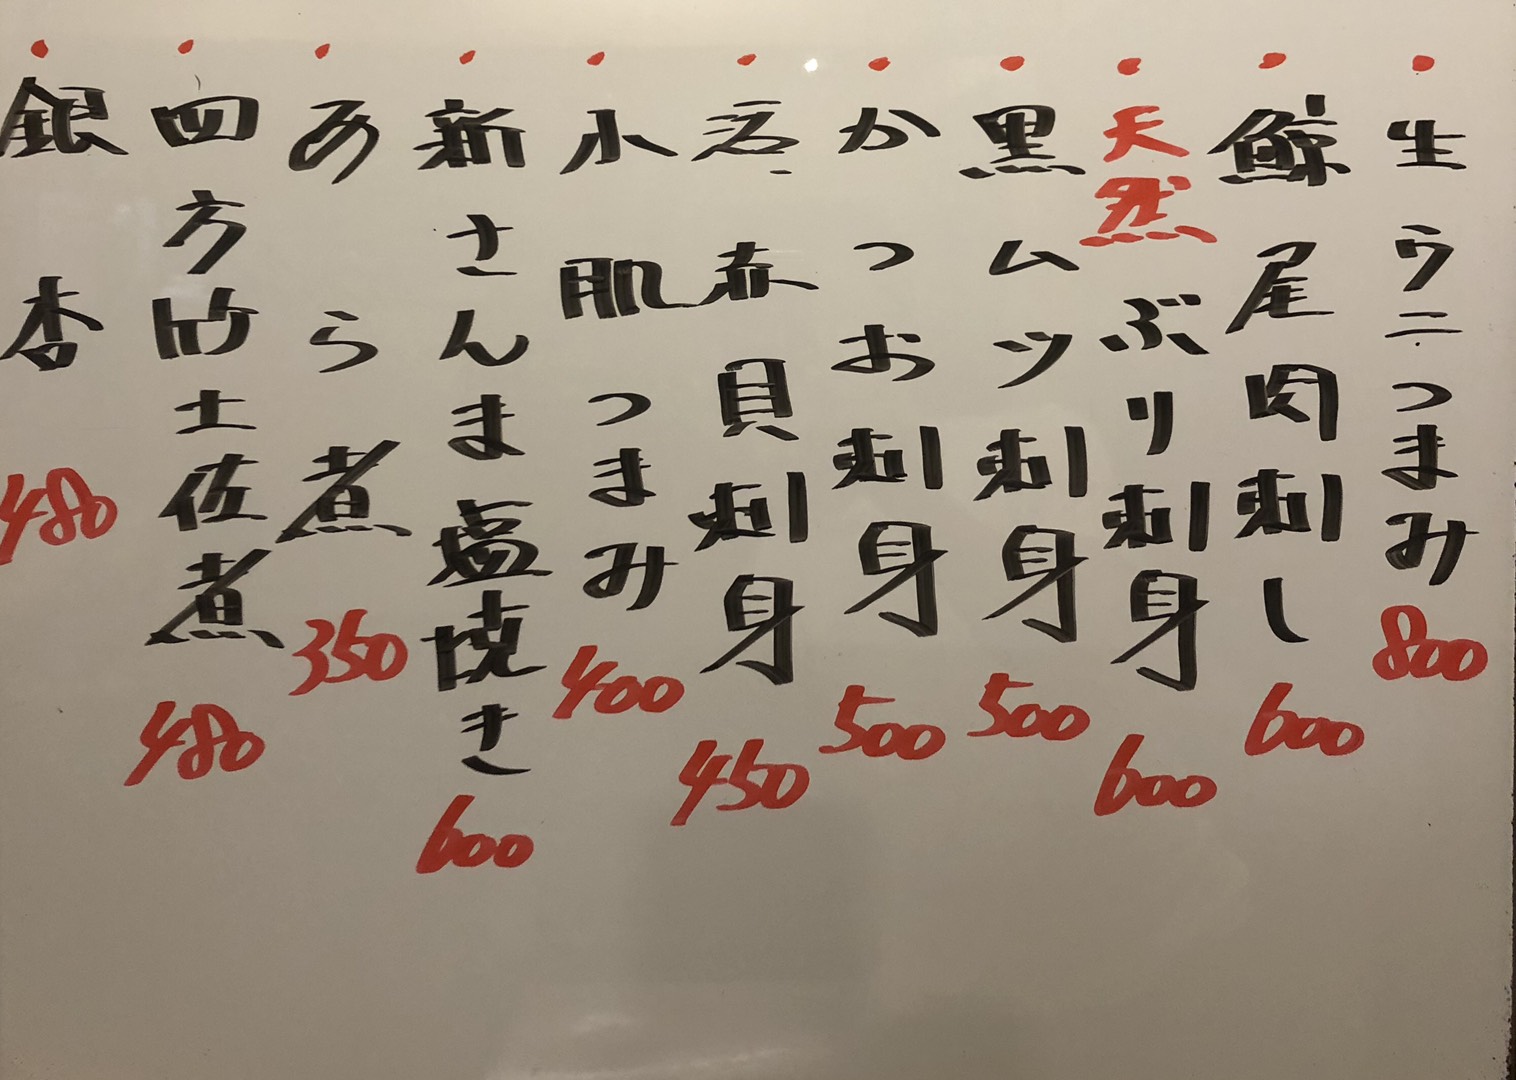 生ウニつまみ 800
鯨尾肉刺し 600
天然ぶり刺身 600
黒ムツ刺身 500
かつお刺身 500
活赤貝刺身 450
小肌つまみ 400
新さんま塩焼き 600
あら煮 350
四方竹土佐煮 480
銀杏 480